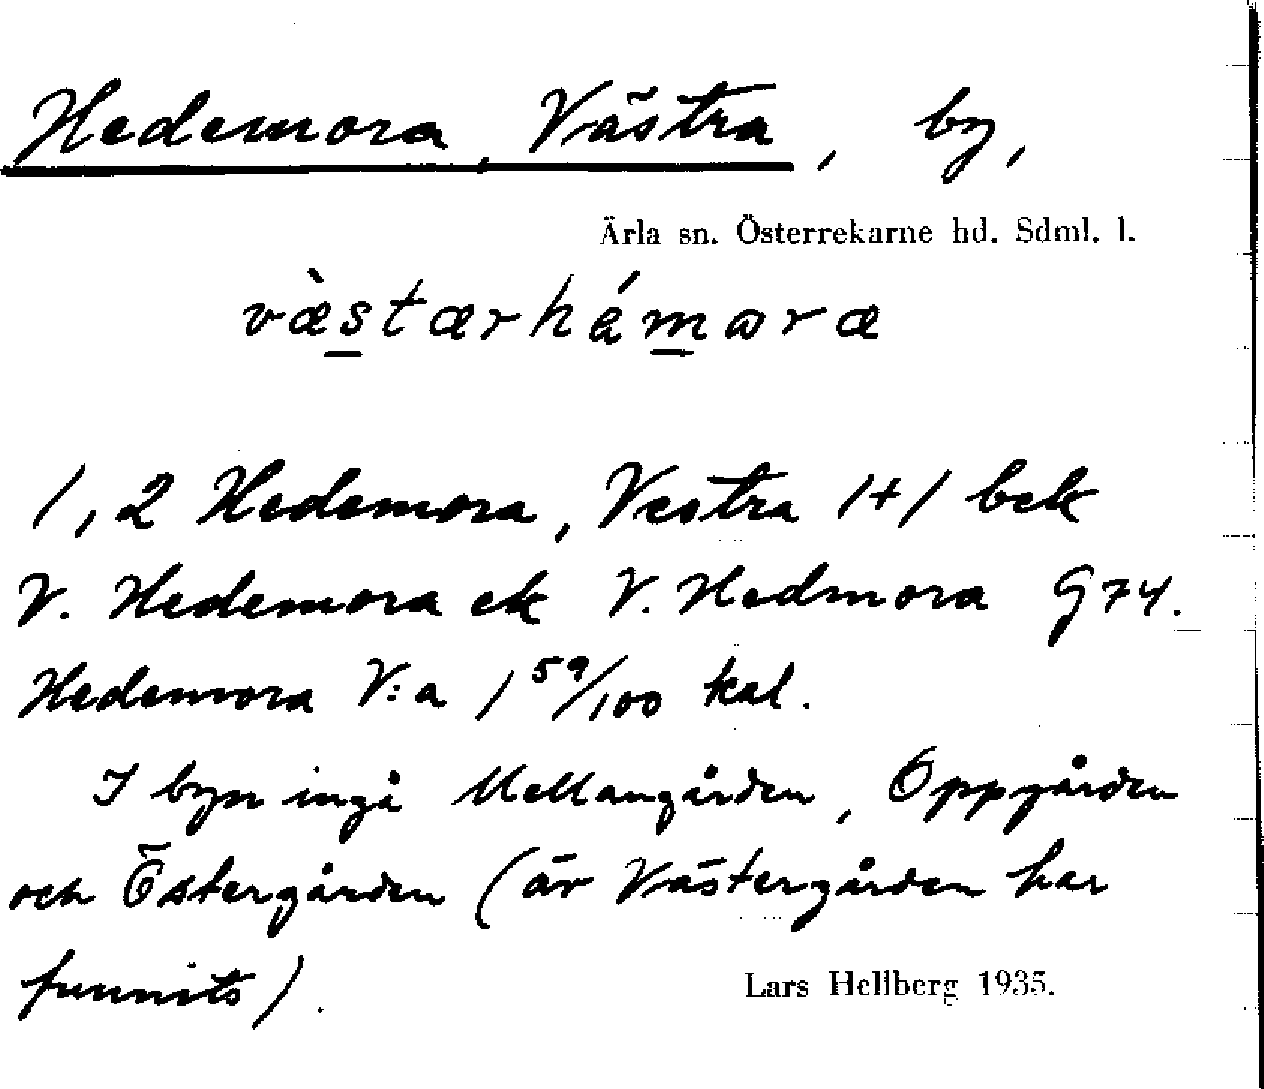 Hedemora, Västra, by,
Ärla sn. Österrekarne hd. Sdml. l.
væ̀stærhémωræ
1, 2 Hedemora, Vestra 1+1 bek
V. Hedemora ek V. Hedmora G74.
Hedemora V:a 1 59/100 kal.
I byn ingå Mellangården, Oppgården
och Östergården (äv Västergården har
funnits).
Lars Hellberg 1935.